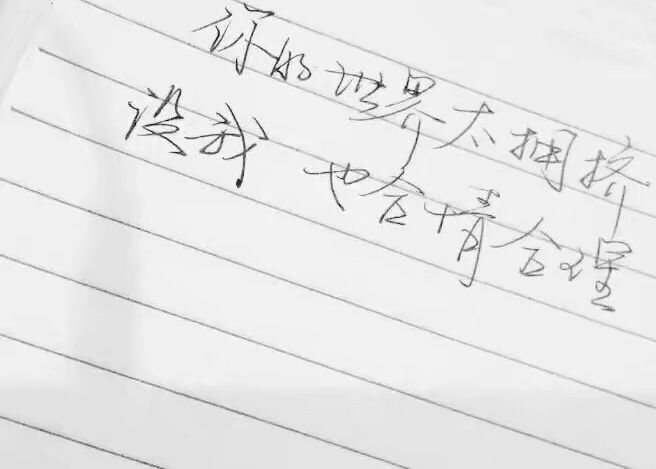 你的世界太拥挤
没我 也合情合理